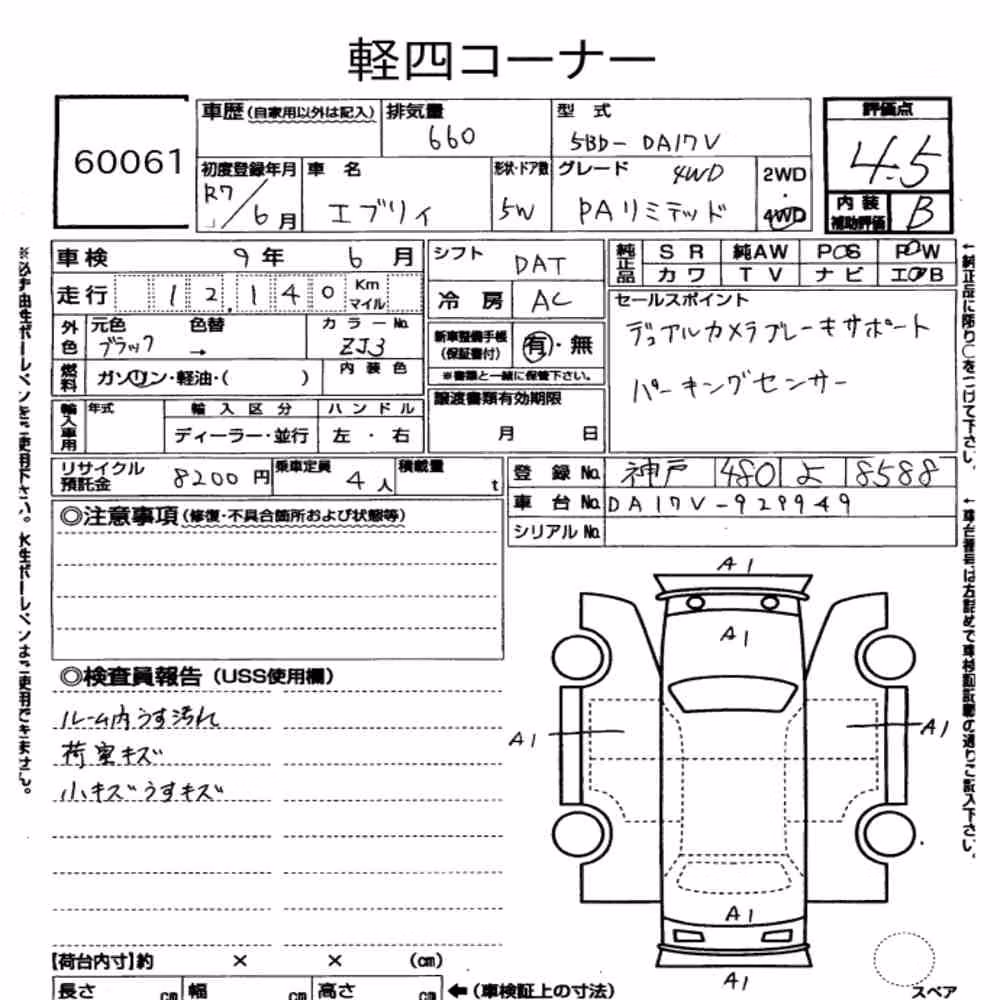 軽四コーナー
60061
車歴(自家用以外は記入) 排気量 660 型式 5BD-DA17V 評価点 4.5
初度登録年月 R7/6月 車名 エブリィ 形状・ドア数 5W グレード 4WD PAリミテッド 2WD・4WD 内装補助評価 B
車検 9年 6月 シフト DAT 純正品 SR 純AW PS PW
カワ TV ナビ エアB
走行 12,140 Km マイル 冷房 AC セールスポイント
外色 元色 ブラック 色替 → カラーNo. ZJ3 新車整備手帳(保証書付) 有・無 デュアルカメラブレーキサポート
燃料 ガソリン・軽油・( ) 内装色 ※書類と一緒に保管下さい。 パーキングセンサー
輸入車用 年式 輸入区分 ハンドル 譲渡書類有効期限
ディーラー・並行 左・右 月 日
リサイクル預託金 8200円 乗車定員 4人 積載量 t 登録No. 神戸 480 よ 8588
車台No. DA17V-929949
シリアルNo.
◎注意事項(修復・不具合箇所および状態等)
◎検査員報告(USS使用欄)
ルーム内うす汚れ
荷室キズ
小キズうすキズ
A1
A1
A1 A1
A1
A1
【荷台内寸】約 × × (cm)
長さ cm 幅 cm 高さ cm ←(車検証上の寸法) スペア
※必ず油性ボールペンをご使用下さい。水性ボールペンはご使用できません。
←純正品に限り○をつけて下さい。
←車台番号は左詰めで車検証記載の通りご記入下さい。